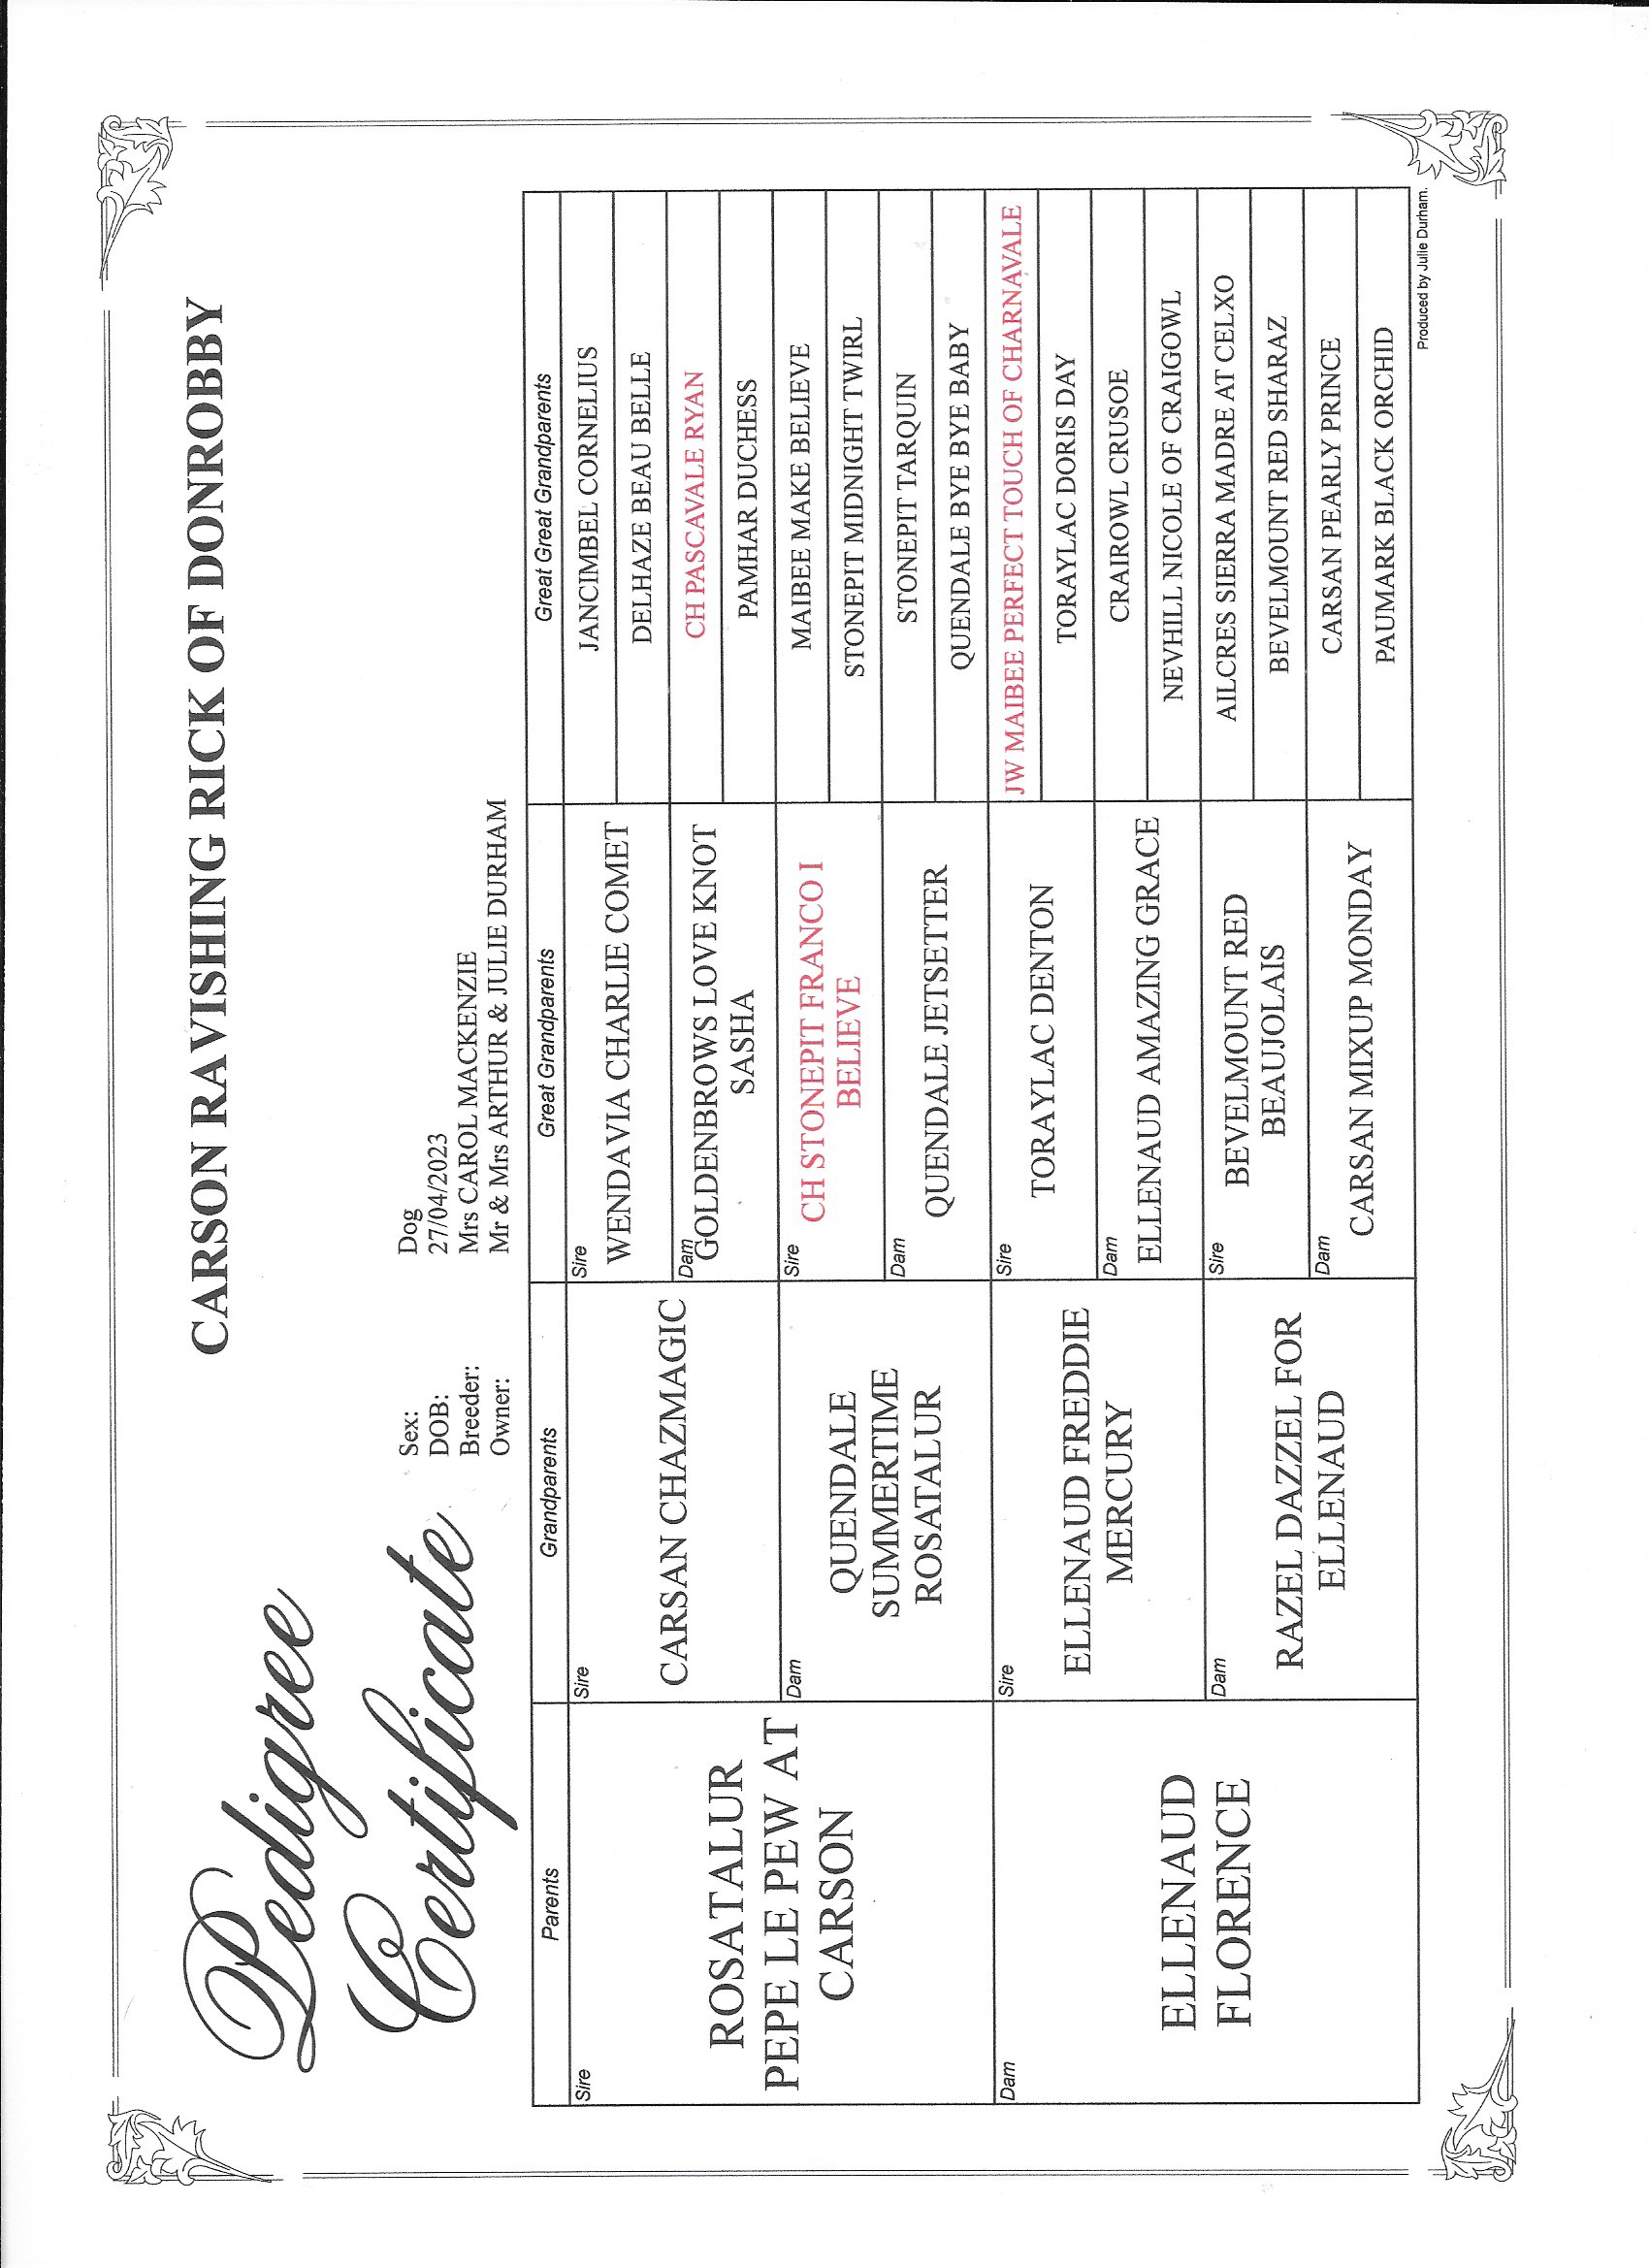 Pedigree
Certificate
CARSON RAVISHING RICK OF DONROBBY
Sex: Dog
DOB: 27/04/2023
Breeder: Mrs CAROL MACKENZIE
Owner: Mr & Mrs ARTHUR & JULIE DURHAM
Parents
Grandparents
Great Grandparents
Great Great Grandparents
Sire
ROSATALUR
PEPE LE PEW AT
CARSON
Dam
ELLENAUD
FLORENCE
Sire
CARSAN CHAZMAGIC
Dam
QUENDALE
SUMMERTIME
ROSATALUR
Sire
ELLENAUD FREDDIE
MERCURY
Dam
RAZEL DAZZEL FOR
ELLENAUD
Sire
WENDAVIA CHARLIE COMET
Dam
GOLDENBROWS LOVE KNOT
SASHA
Sire
CH STONEPIT FRANCO I
BELIEVE
Dam
QUENDALE JETSETTER
Sire
TORAYLAC DENTON
Dam
ELLENAUD AMAZING GRACE
Sire
BEVELMOUNT RED
BEAUJOLAIS
Dam
CARSAN MIXUP MONDAY
JANCIMBEL CORNELIUS
DELHAZE BEAU BELLE
CH PASCAVALE RYAN
PAMHAR DUCHESS
MAIBEE MAKE BELIEVE
STONEPIT MIDNIGHT TWIRL
STONEPIT TARQUIN
QUENDALE BYE BYE BABY
JW MAIBEE PERFECT TOUCH OF CHARNAVALE
TORAYLAC DORIS DAY
CRAIROWL CRUSOE
NEVHILL NICOLE OF CRAIGOWL
AILCRES SIERRA MADRE AT CELXO
BEVELMOUNT RED SHARAZ
CARSAN PEARLY PRINCE
PAUMARK BLACK ORCHID
Produced by Julie Durham.